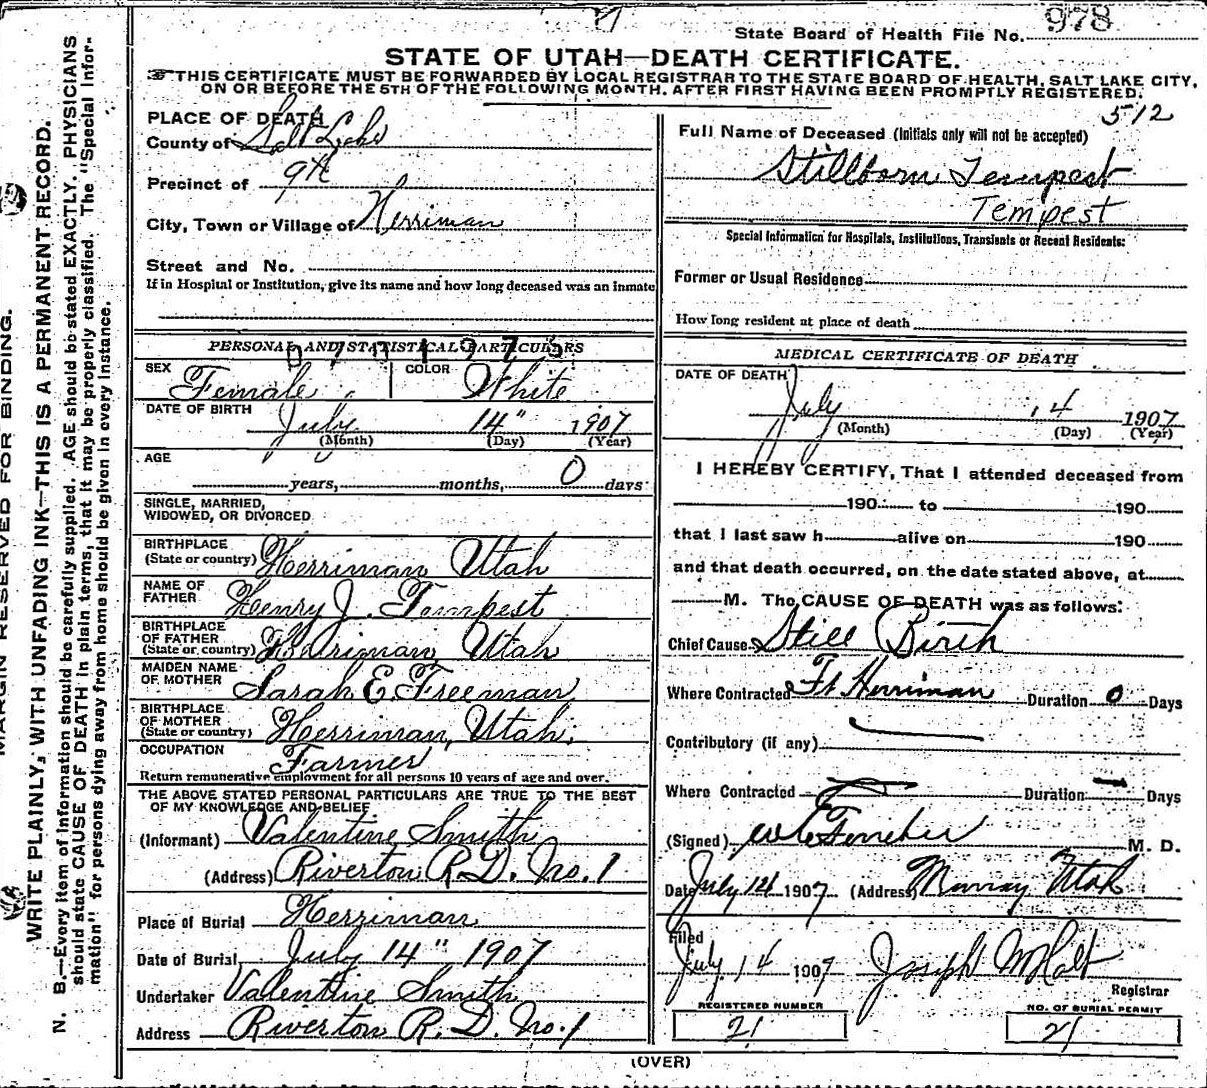 978
State Board of Health File No.
STATE OF UTAH—DEATH CERTIFICATE.
THIS CERTIFICATE MUST BE FORWARDED BY LOCAL REGISTRAR TO THE STATE BOARD OF HEALTH, SALT LAKE CITY,
ON OR BEFORE THE 5TH OF THE FOLLOWING MONTH, AFTER FIRST HAVING BEEN PROMPTLY REGISTERED.
512
MARGIN RESERVED FOR BINDING.
WRITE PLAINLY, WITH UNFADING INK—THIS IS A PERMANENT RECORD.
N. B.—Every item of information should be carefully supplied. AGE should be stated EXACTLY. PHYSICIANS
should state CAUSE OF DEATH in plain terms, that it may be properly classified. The "Special Infor-
mation" for persons dying away from home should be given in every instance.
PLACE OF DEATH
County of Salt Lake
Precinct of 9th
City, Town or Village of Herriman
Street and No.
If in Hospital or Institution, give its name and how long deceased was an inmate
PERSONAL AND STATISTICAL PARTICULARS
SEX Female COLOR White
DATE OF BIRTH July 14" 1907
(Month) (Day) (Year)
AGE
years, months, 0 days
SINGLE, MARRIED,
WIDOWED, OR DIVORCED
BIRTHPLACE
(State or country) Herriman Utah
NAME OF
FATHER Henry J. Tempest
BIRTHPLACE
OF FATHER
(State or country) Utah
MAIDEN NAME
OF MOTHER Sarah E Freeman
BIRTHPLACE
OF MOTHER
(State or country) Herriman, Utah.
OCCUPATION Farmer
Return remunerative employment for all persons 10 years of age and over.
THE ABOVE STATED PERSONAL PARTICULARS ARE TRUE TO THE BEST
OF MY KNOWLEDGE AND BELIEF
(Informant) Valentine Smith
(Address) Riverton R.D. No. 1
Place of Burial Herriman
Date of Burial July 14" 1907
Undertaker Valentine Smith
Address Riverton R.D. No. 1
Full Name of Deceased (Initials only will not be accepted)
Stillborn Tempest
Tempest
Special Information for Hospitals, Institutions, Transients or Recent Residents:
Former or Usual Residence
How long resident at place of death
MEDICAL CERTIFICATE OF DEATH
DATE OF DEATH
July 14 1907
(Month) (Day) (Year)
I HEREBY CERTIFY, That I attended deceased from
190 to 190
that I last saw h alive on 190
and that death occurred, on the date stated above, at
M. The CAUSE OF DEATH was as follows:
Chief Cause Still Birth
Where Contracted Ft Herriman Duration 0 Days
Contributory (if any)
Where Contracted Duration — Days
(Signed) M. D.
Date July 14 1907 (Address) Murray Utah
Filed
July 14 1907 Joseph
Registrar
REGISTERED NUMBER
21
NO. OF BURIAL PERMIT
21
(OVER)